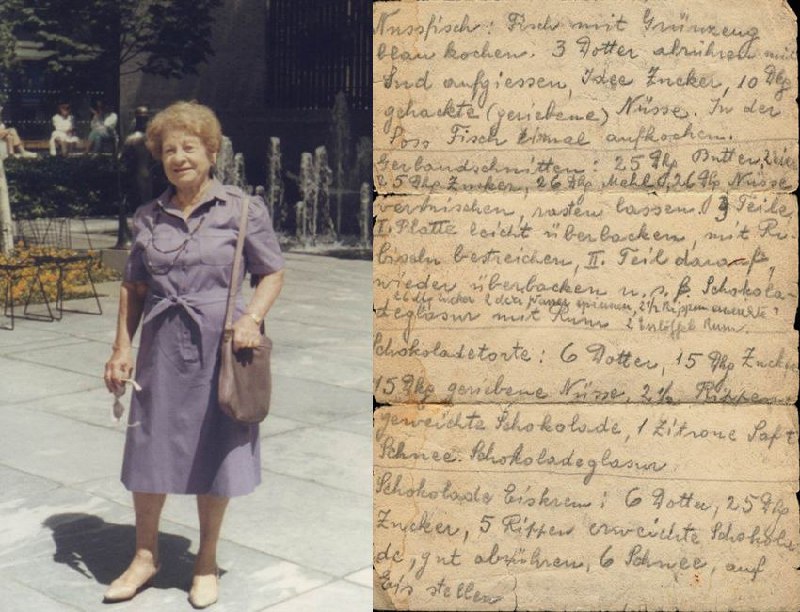 Nussfisch: Fisch mit Grünzeug
blau kochen. 3 Dotter abrühren mit
Sud aufgiessen, Idee Zucker, 10 Dkg
gehackte (geriebene) Nüsse. In der
Soss Fisch einmal aufkochen.
Gerbaudschnitten: 25 Dkg Butter,
25 Dkg Zucker, 26 Dkg Mehl, 26 Dkg Nüsse
vermischen, rasten lassen. 3 Teile,
I. Platte leicht überbacken, mit Ri-
biseln bestreichen, II. Teil darauf,
wieder überbacken u. s. f. Schokola-
26 dkg Zucker 2 Rippen
deglasur mit Rum 2 Esslöffel Rum.
Schokoladetorte: 6 Dotter, 15 Dkg Zucker
15 Dkg geriebene Nüsse, 2½ Rippen
geweichte Schokolade, 1 Zitrone Saft
Schnee. Schokoladeglasur
Schokolade Eiskrem: 6 Dotter, 25 Dkg
Zucker, 5 Rippen erweichte Schokola-
de, gut abrühren, 6 Schnee, auf
Eis stellen